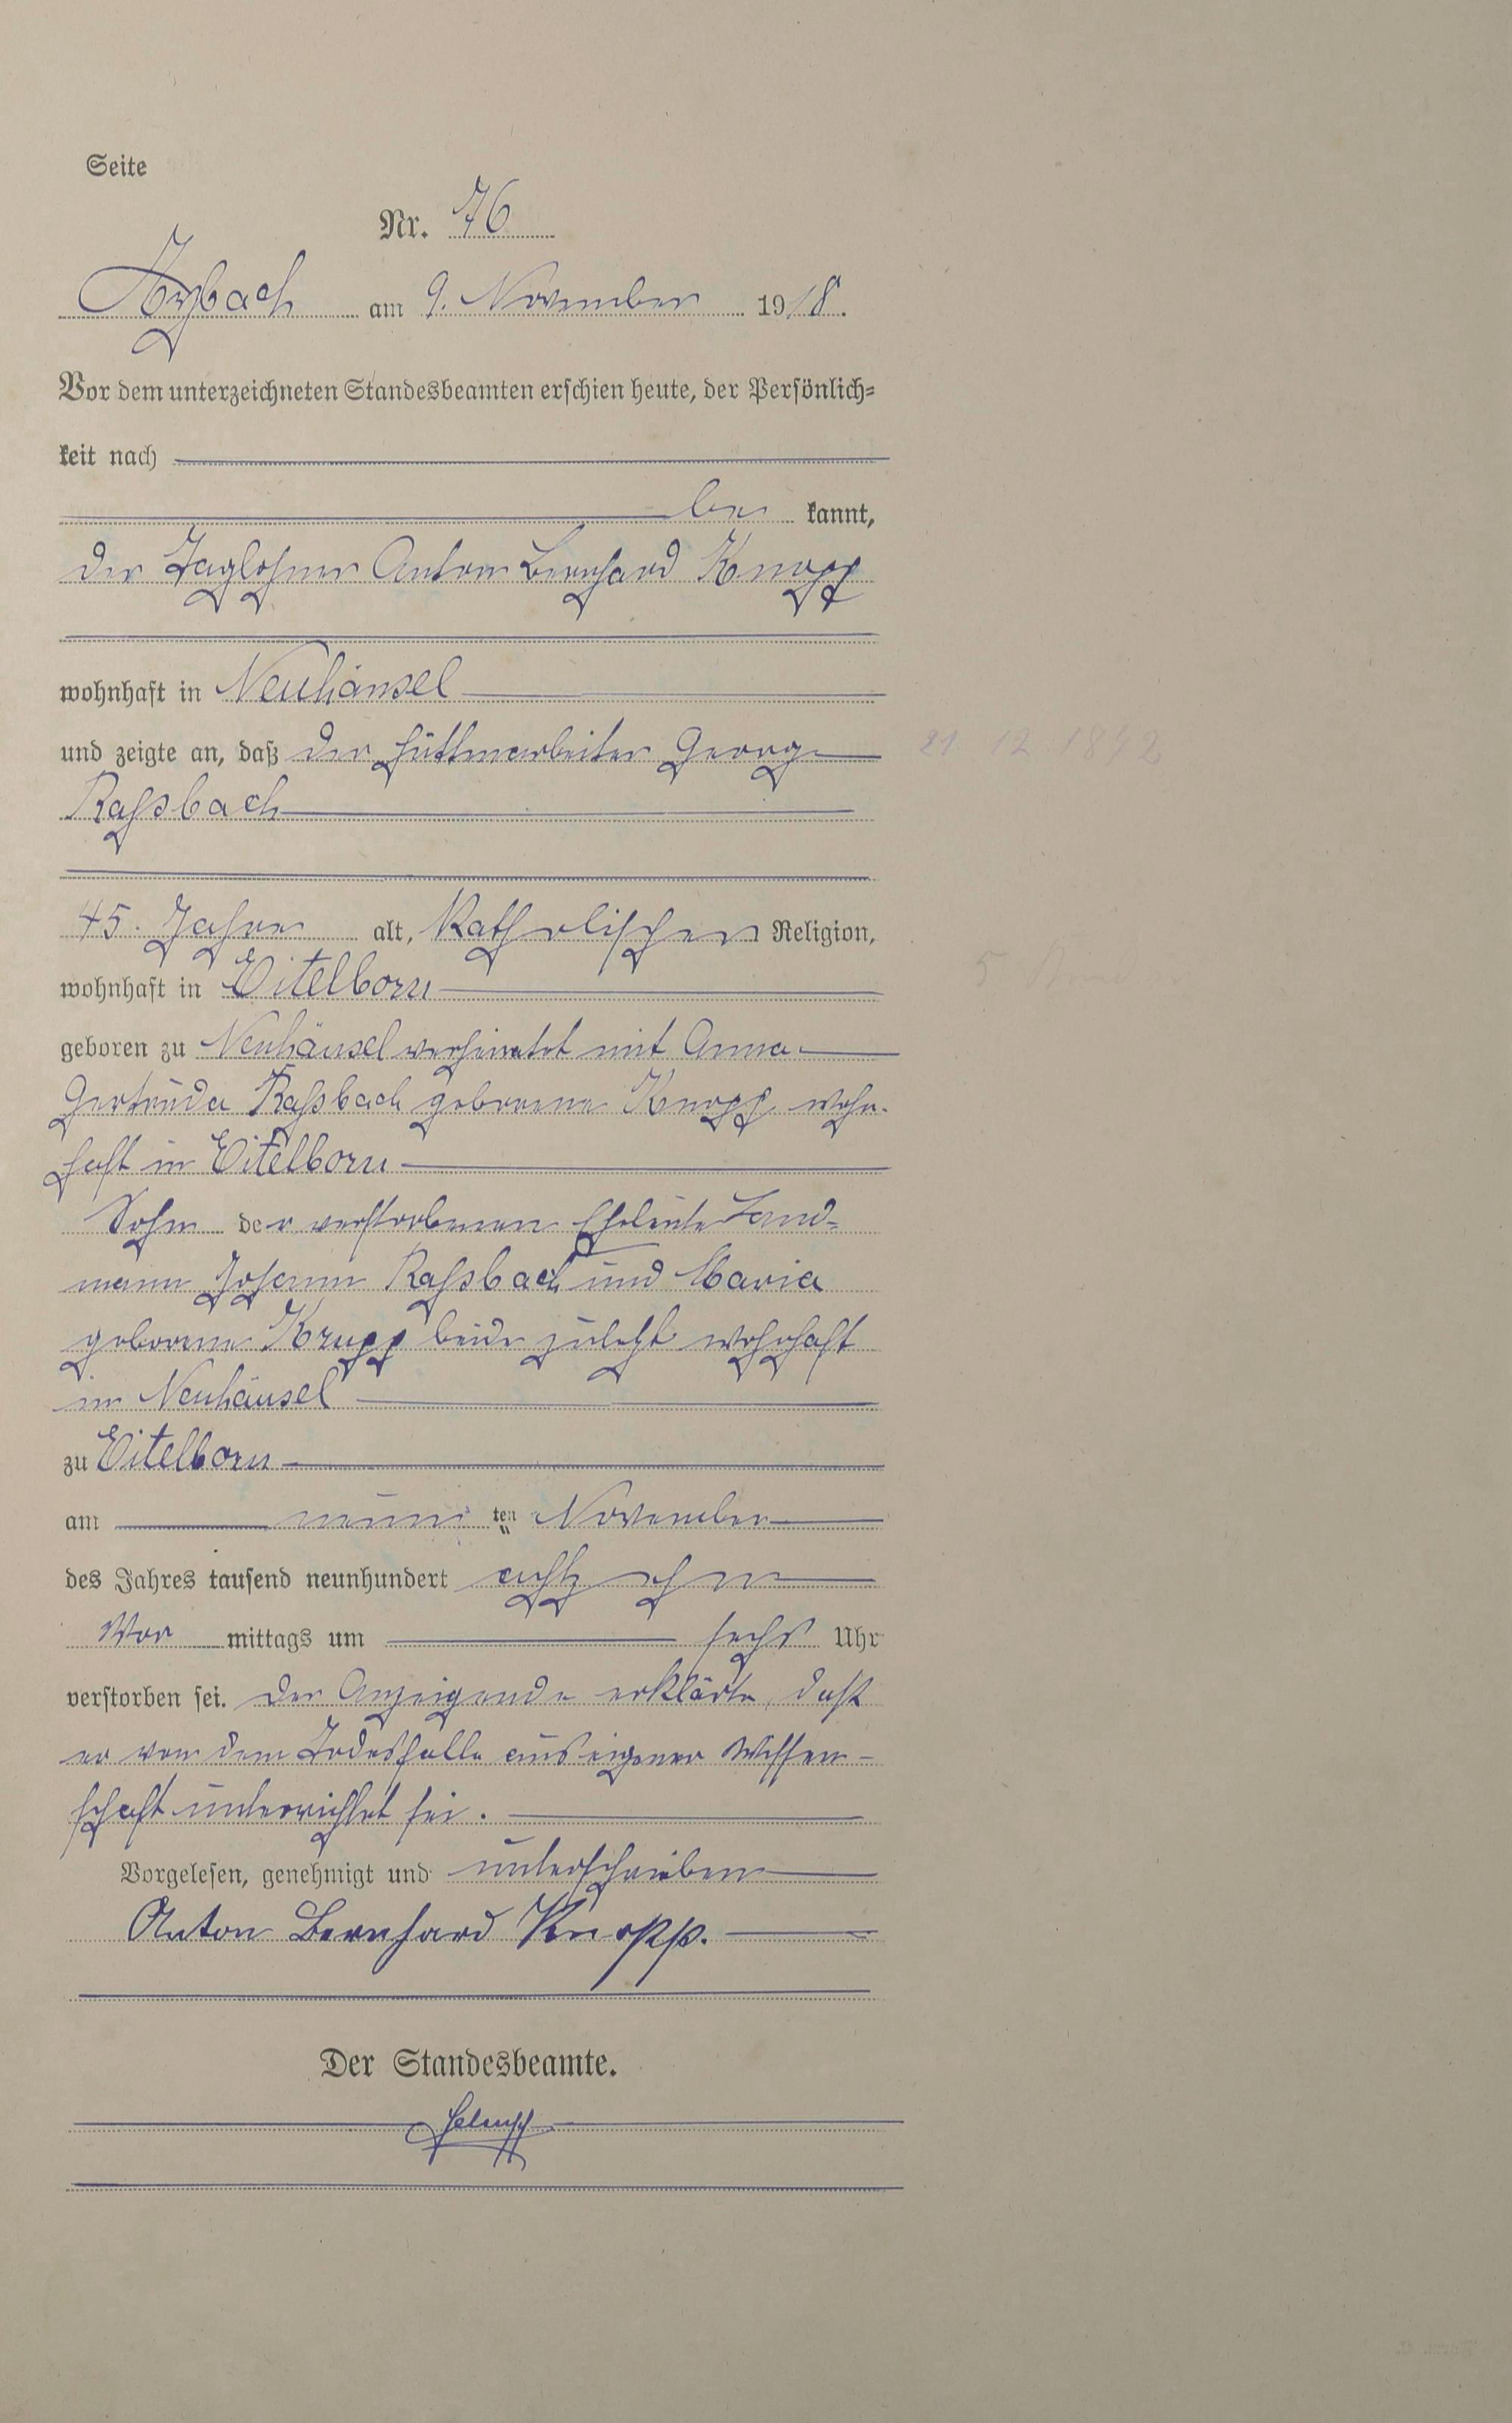 Seite
Nr. 76
Arzbach am 9. November 1918.
Vor dem unterzeichneten Standesbeamten erschien heute, der Persönlich=
keit nach
be kannt,
der Taglöhner Anton Bernhard Knopp
wohnhaft in Neuhäusel
und zeigte an, daß der Hüttenarbeiter Georg
Raßbach
45. Jahre alt, katholischer Religion,
wohnhaft in Eitelborn
geboren zu Neuhäusel verheiratet mit Anna
Gertruda Raßbach geborene Knopp wohn-
haft in Eitelborn
Sohn der verstorbenen Eheleute Land=
mann Johann Raßbach und Maria
geborene Krupp beide zuletzt wohnhaft
in Neuhäusel
zu Eitelborn
am neun ten November
des Jahres tausend neunhundert achtzehn
Vor mittags um sechs Uhr
verstorben sei. Der Anzeigende erklärte, daß
er von dem Todesfalle aus eigener Wissen-
schaft unterrichtet sei.
Vorgelesen, genehmigt und unterschrieben
Anton Bernhard Knopp.
Der Standesbeamte.
21 12 1842